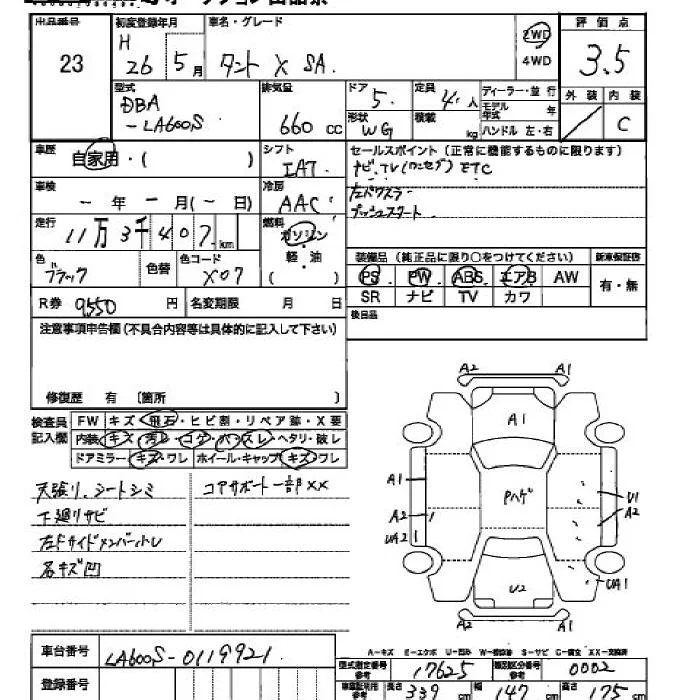 出品番号 初度登録年月 車名・グレード 評価点
23 H 26 5月 タント X SA. 2WD 4WD 3.5
外装 内装
C
型式 排気量 ドア 定員 ディーラー・並行
DBA -LA600S 660 cc 5. 4.人 モデル年式 年
形状 積載 ハンドル 左・右
WG kg
車歴 自家用・( ) シフト セールスポイント (正常に機能するものに限ります)
IAT. ナビ.TV(ワンセグ) ETC
車検 冷房 左パワスラ
ー年ー月(ー日) AAC プッシュスタート
走行 燃料
11万3千407km ガソリン
軽・油
( )
色 色替 色コード 装備品 (純正品に限り○をつけてください) 新車保証書
ブラック X07 PS PW ABS エアB AW 有・無
SR ナビ TV カワ
R券 9550 円 名変期限 月 日 後日品
注意事項申告欄(不具合内容等は具体的に記入して下さい)
修復歴 有 〔箇所 〕
検査員記入欄 FW キズ・飛石・ヒビ割・リペア跡・X要
内装・キズ・汚レ・コゲ・ハ・スレ・ヘタリ・破レ
ドアミラー・キズ・ワレ ホイール・キャップ・キズ・ワレ
天張リ、シートシミ コアサポート一部XX
下廻リサビ
左Fサイドメンバー小レ
各キズ凹
A2 A1
A1
A1 Pハゲ U1
A2 A2
UA2 UA1
U2
A2 A1
A-キズ E-エクボ U-凹ミ W-補修跡 S-サビ C-腐食 XX-交換済
車台番号 LA600S-0119921.
登録番号
型式指定番号 17625 類別区分番号 0002
長さ 339 cm 幅 147 cm 高さ 175 cm